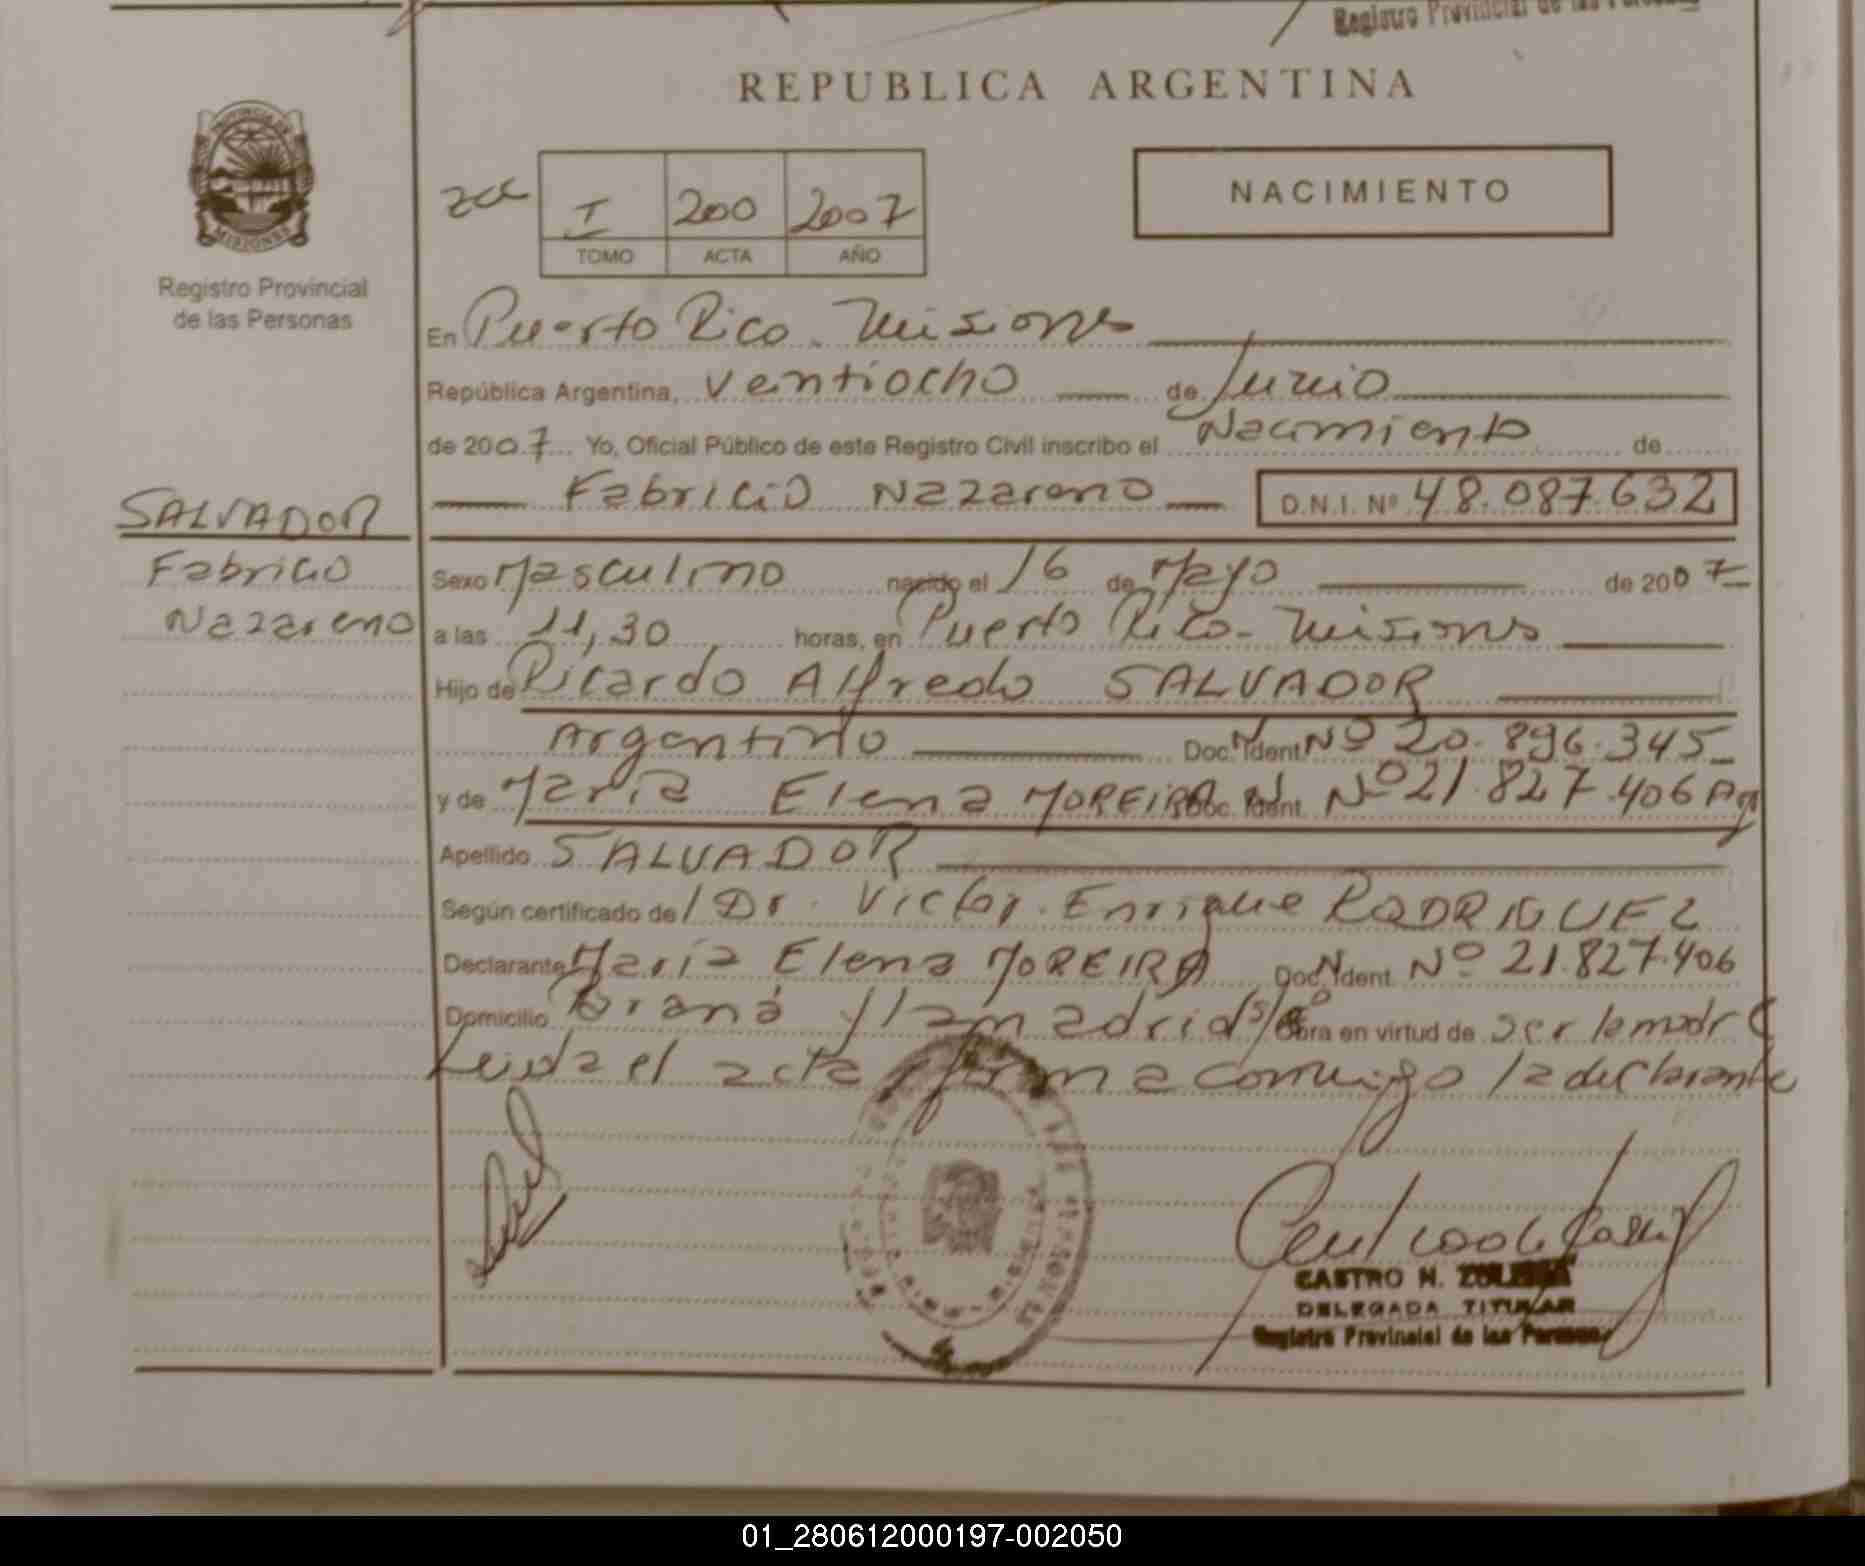 Registro Provincial de las Personas
REPUBLICA ARGENTINA
PROVINCIA DE
MISIONES
Registro Provincial
de las Personas
I 200 2007
TOMO ACTA AÑO
NACIMIENTO
En Puerto Rico - Misiones
República Argentina, Veintiocho de Junio
de 2007 Yo, Oficial Público de este Registro Civil inscribo el Nacimiento de
Fabricio Nazareno D.N.I. Nº 48.087.632
SALVADOR
Fabricio
Nazareno
Sexo Masculino nacido el 16 de Mayo de 2007
a las 11,30 horas, en Puerto Rico - Misiones
Hijo de Ricardo Alfredo SALVADOR
Argentino Doc. Ident. Nº 20.896.345
y de María Elena MOREIRA Doc. Ident. Nº 21.827.406 Arg
Apellido SALVADOR
Según certificado de Dr. Victor Enrique RODRIGUEZ
Declarante María Elena MOREIRA Doc. Ident. Nº 21.827.406
Domicilio y Lamadrid s/nº Obra en virtud de ser la madre
Leida el acta firma conmigo la declarante
CASTRO N. ZULEMA
DELEGADA TITULAR
Registro Provincial de las Personas
01_280612000197-002050